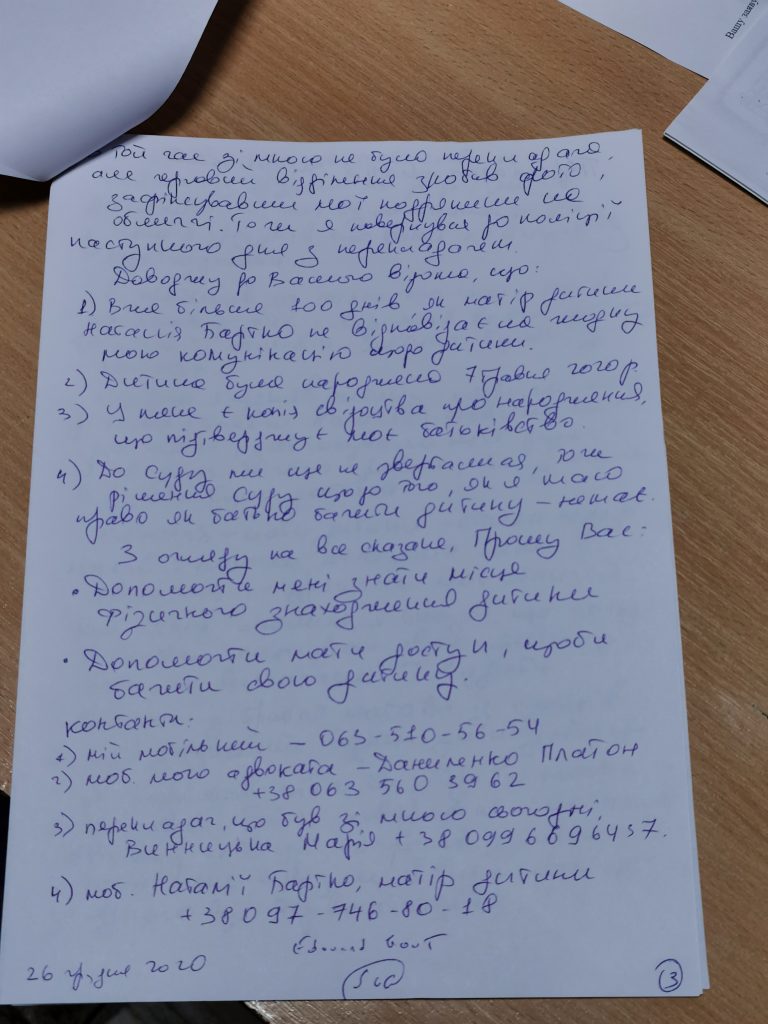 Вашу заяву
Той час зі мною не було перекладача,
але черговий відділення зробив фото,
зафіксувавши мої подряпини на
обличчі. Тож я повернувся до поліції
наступного дня з перекладачем.
Доводжу до Вашого відома, що:
1) Вже більше 100 днів, як матір дитини
Наталія Бартко не відповідає на жодну
мою комунікацію щодо дитини.
2) Дитина була народжена 7 травня 2020р.
3) У мене є копія свідоцтва про народження,
що підтверджує моє батьківство.
4) До суду ми ще не звертались,
рішення суду щодо того, як я маю
право як батько бачити дитину – немає.
З огляду на все сказане, Прошу Вас:
• Допомогти мені знати місце
фізичного знаходження дитини
• Допомогти мати доступ, щоби
бачити свою дитину.
контакти:
1) мій мобільний – 063-510-56-54
2) моб. мого адвоката – Даниленко Платон
+38 063 560 3962
3) перекладач, що був зі мною сьогодні,
Винницька Марія +38 0996696437.
4) моб. Наталії Бартко, матір дитини
+38097-746-80-18
26 грудня 2020
3